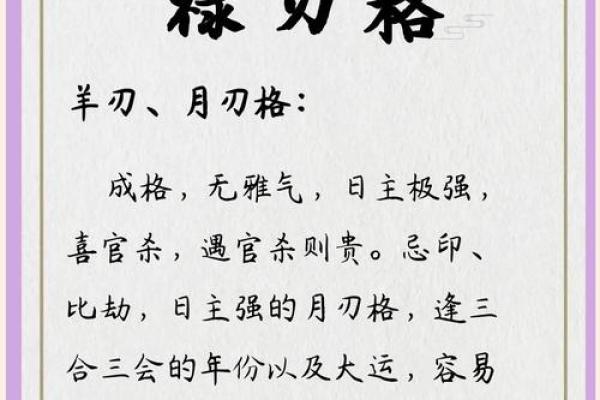 禄刃格
羊刃、月刃格：
成格，无雅气，日主极强，
喜官杀，遇官杀则贵。忌印、
比劫，日主强的月刃格，逢三
合三会的年份以及大运，容易